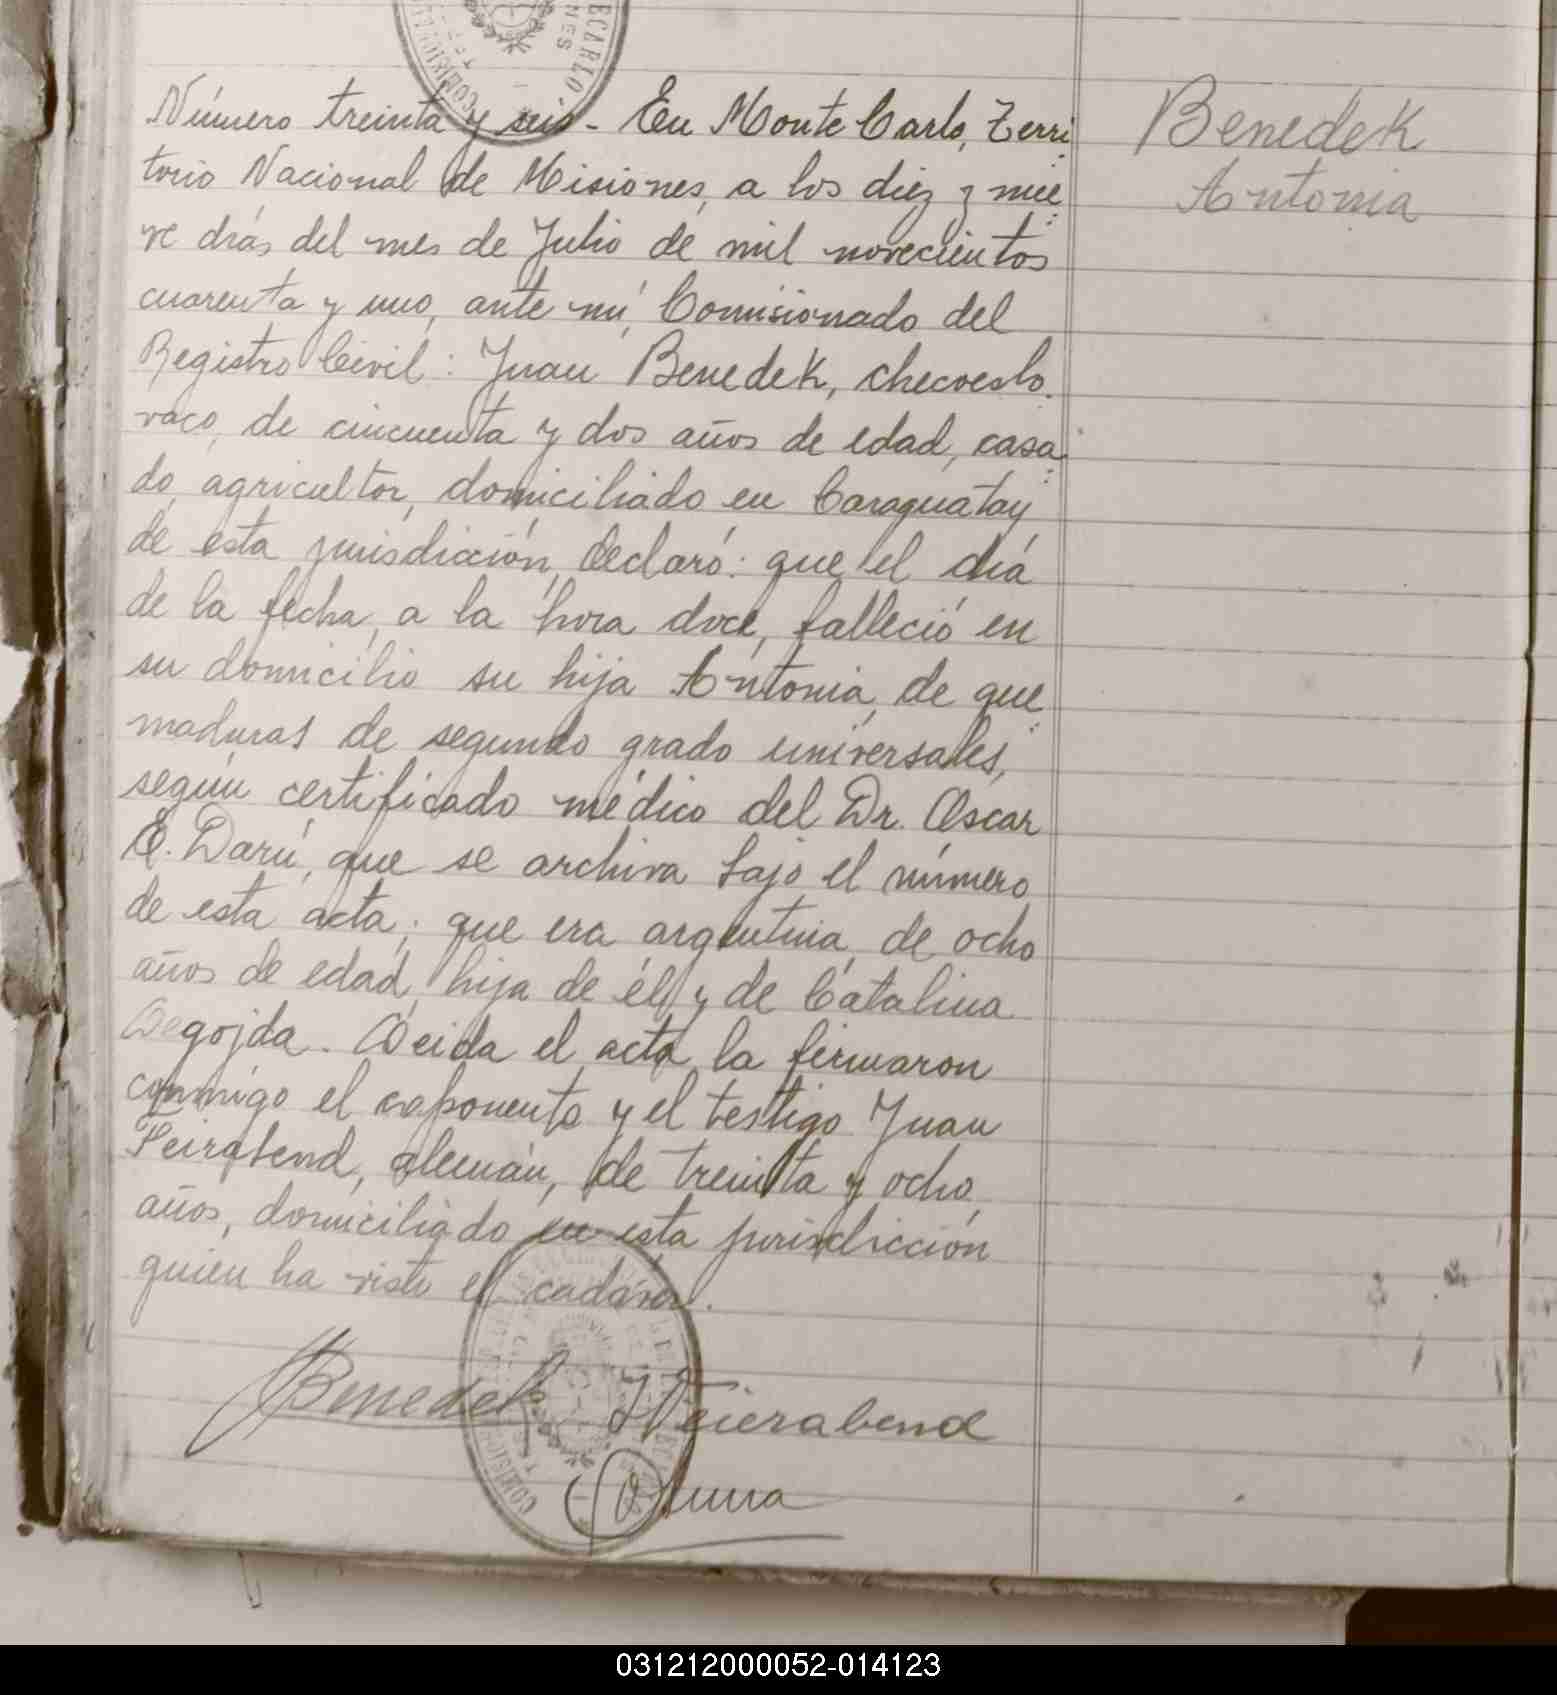 Número treinta y seis - En Monte Carlo, Terri
torio Nacional de Misiones, a los diez y nue
ve días del mes de Julio de mil novecientos
cuarenta y uno, ante mí, Comisionado del
Registro Civil: Juan Benedek, checoeslo
vaco, de cincuenta y dos años de edad, casa
do, agricultor, domiciliado en Caraguatay
de esta jurisdicción, declaró: que el día
de la fecha, a la hora doce, falleció en
su domicilio su hija Antonia, de que
maduras de segundo grado universales,
según certificado médico del Dr. Oscar
E. Darú, que se archiva bajo el número
de esta acta; que era argentina, de ocho
años de edad, hija de él y de Catalina
Degojda. Leida el acta la firmaron
conmigo el exponente y el testigo Juan
Feirabend, alemán, de treinta y ocho
años, domiciliado en esta jurisdicción
quien ha visto el cadáver.
Benedek
Antonia
Benedek
Feierabend
031212000052-014123